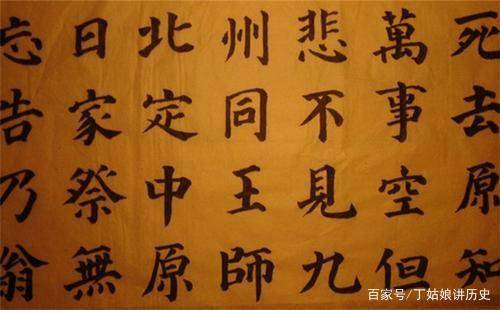 死去原知
萬事空但
悲不見九
州同王師
北定中原
日家祭無
忘告乃翁
百家号/丁姑娘讲历史